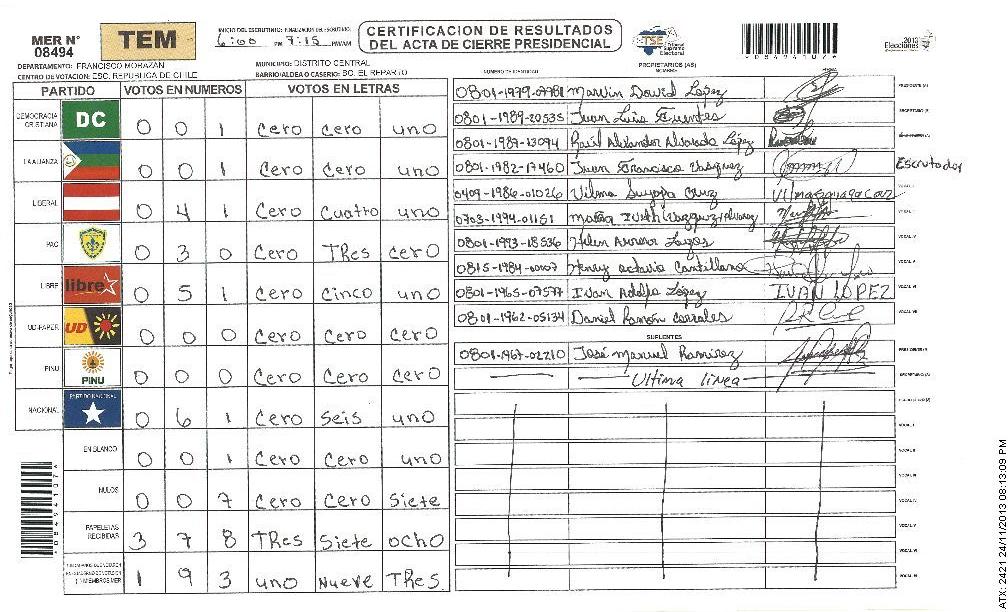 MER N° 08494
TEM
INICIO DEL ESCRUTINIO: 6:00 PM FINALIZACIÓN DEL ESCRUTINIO: 7:15 PM/AM
CERTIFICACION DE RESULTADOS
DEL ACTA DE CIERRE PRESIDENCIAL
TSE Tribunal Supremo Electoral
084941072
2013 Elecciones
DEPARTAMENTO: FRANCISCO MORAZAN
CENTRO DE VOTACION: ESC. REPUBLICA DE CHILE
MUNICIPIO: DISTRITO CENTRAL
BARRIO/ALDEA O CASERIO: BO. EL REPARTO
NUMERO DE IDENTIDAD
PROPIETARIOS (AS)
NOMBRE
FIRMA
PARTIDO VOTOS EN NUMEROS VOTOS EN LETRAS
DEMOCRACIA CRISTIANA DC 0 0 1 Cero Cero uno
LA ALIANZA 0 0 1 Cero Cero uno
LIBERAL 0 4 1 Cero Cuatro uno
PAC 0 3 0 Cero TRes cerO
LIBRE libre 0 5 1 Cero Cinco uno
UD-FAPER UD 0 0 0 Cero Cero Cero
PINU PINU 0 0 0 Cero Cero Cero
NACIONAL PARTIDO NACIONAL 0 6 1 Cero Seis uno
EN BLANCO 0 0 1 Cero Cero uno
NULOS 0 0 7 Cero Cero Siete
PAPELETAS RECIBIDAS 3 7 8 TRes Siete ocho
1 9 3 uno Nueve TRes
0801-1979-07981 Marvin David Lopez PRESIDENTE (A)
0801-1989-20535 Juan Luis Fuentes SECRETARIO (A)
0801-1987-13094 Raúl Alexander Alvarado López
0801-1982-17460 Juan Francisco Vásquez Escrutador
0409-1986-01026 Vilma Suyapa Cruz VOCAL I
0703-1994-01151 VOCAL II
0801-1993-18536 Helen Aurora Lagos VOCAL IV
0815-1984-00107 Henry octavio Cantillano VOCAL V
0801-1965-07577 Ivan Adolfo López IVAN LOPEZ VOCAL VI
0801-1962-05134 Daniel Ramón Corrales VOCAL VII
SUPLENTES
0801-1967-02210 José Manuel Ramírez PRESIDENTE (A)
Ultima linea SECRETARIO (A)
VOCAL I
VOCAL II
VOCAL III
VOCAL IV
VOCAL V
VOCAL VI
084941072
ATX: 2421 24/11/2013 08:13:09 PM